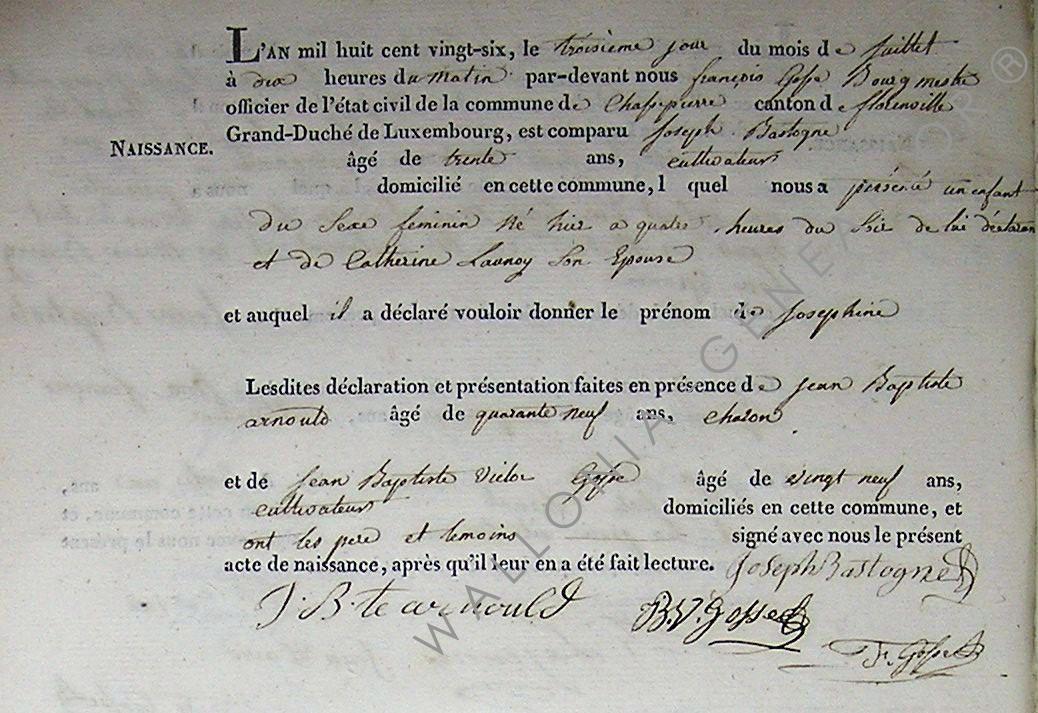 L'AN mil huit cent vingt-six, le troisième jour du mois de Juillet
à dix heures du Matin par-devant nous françois Gosse Bourgmestre
officier de l'état civil de la commune de Chassepierre canton de florenville
Grand-Duché de Luxembourg, est comparu Joseph Bastogne
NAISSANCE.
âgé de trente ans, cultivateur
domicilié en cette commune, l quel nous a présenté un enfant
du Sexe féminin Né hier a quatre heures du Soir de lui déclarant
et de Catherine Launoy Son Epouse
et auquel il a déclaré vouloir donner le prénom de Josephine
Lesdites déclaration et présentation faites en présence de Jean Baptiste
arnould âgé de quarante neuf ans, charon
et de Jean Baptiste Victor Gosse âgé de vingt neuf ans,
cultivateur domiciliés en cette commune, et
ont les pere et temoins signé avec nous le présent
acte de naissance, après qu'il leur en a été fait lecture. Joseph Bastogne
J. B. te arnould B. V. Gosse
F. Gosse
WALLONIA GENEALOR ®